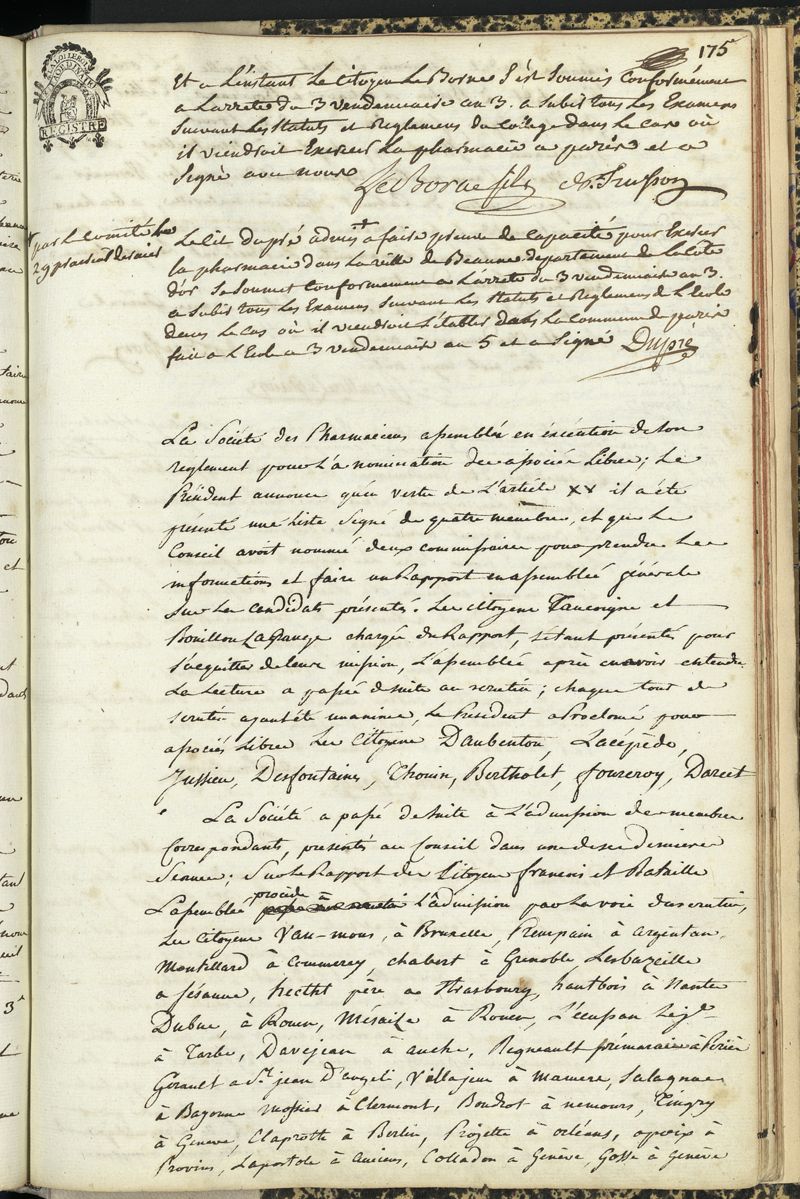 175
REGISTRE
Et a Linstant Le Citoyen Le Borne s'est soumis Conformément
a Larreté du 3 vendemiaire an 3. a subir tous Les Examens
suivant Les Statuts et Reglemens du College dans Le cas où
il viendroit Exercer La pharmacie a paris et a
signé avec nous
LeBorne fils
par Le Comité Le
29 prairial dernier
Le Cit Dupré admis + a faire preuve de Capacité pour Exercer
la pharmacie dans La ville de Beaune departement de La Côte
d'or Se Soumet Conformement a L'arreté du 3 vendemiaire an 3.
a subir tous Les Examens suivant Les Statuts et Reglemens de L'Ecole
dans Le cas où il viendroit s'établir dans La Commune de paris
fait a L'Ecole ce 3 vendemiaire an 5 et a signé Dupré
La Société des Pharmaciens assemblée en éxécution de son
reglement pour La nomination des associés Libres; Le
Président annonce qu'en vertu de L'article XV il a été
présenté une Liste signé de quatre membres, et que Le
Conseil avoit nommé deux commissaires pour prendre Les
informations et faire un Rapport en assemblée générale
sur Les candidats présentés. Les citoyens Tancoigne et
Bouillon LaGrange chargés du Rapport, s'étant présentés pour
s'acquitter de leur mission, L'assemblée après en avoir entendu
La Lecture a passé de suite au scrutin; chaque tour de
scrutin ayant été unanime, Le Président a Proclamé pour
associés Libres Les Citoyens Daubenton, Lacépède,
Jussieu, Desfontaines, Thouin, Bertholet, foureroy, Darcet
La Société a passé de suite à L'admission des membres
Correspondants, presentés au Conseil dans une de ses dernieres
Seances; Sur Le Rapport des Citoyens francois et Bataille
L'assemblée procède à L'admission par La voie du scrutin,
Les Citoyens Van-mons, à Bruxelle, Prempain à argentan,
Montillard à Commercy, chabert à Grenoble, Lesbazeille
a Sésanne, hectht père a Strasbourg, hautbois à Nantes
Dubuc, à Rouen, Mésaize à Rouen, L'écussan
à Tarbe, Davejean à auche, Regneault
Girault a St jean D'angeli, Villajeu à Mamers, Salagnac
à Bayonne Mossier à Clermont, Boudrot à nemours, Tingry
à Geneve, Claprotte à Berlin, Prozette à orléans, opoix à
Provins, Lapostole à amiens, Colladon à Genève, Gosse à Genève